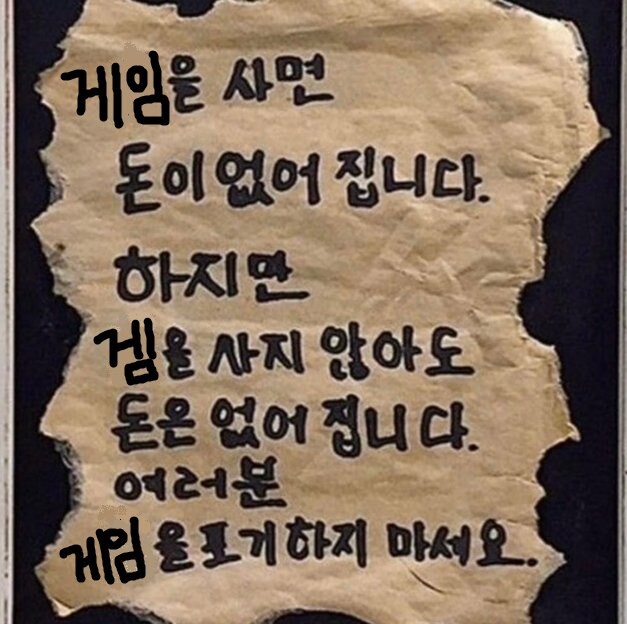 게임을 사면
돈이 없어 집니다.
하지만
겜을 사지 않아도
돈은 없어 집니다.
여러분
게임을 포기하지 마세요.